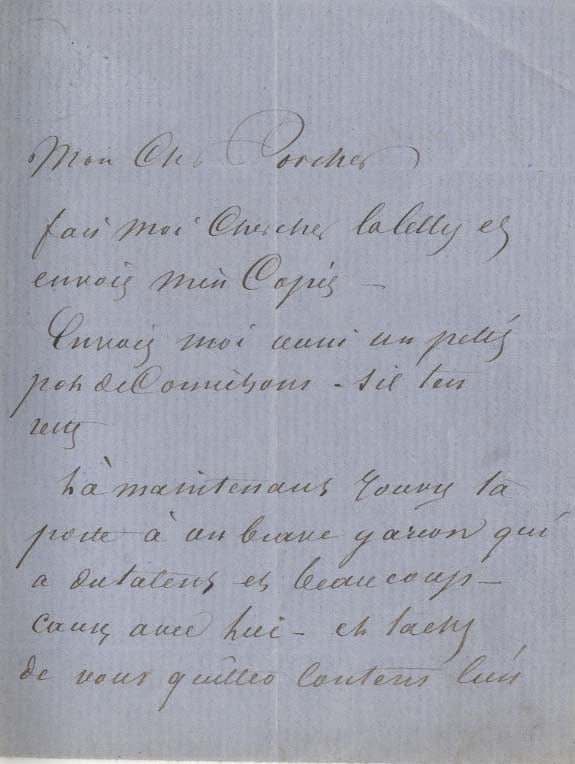 Mon Cher Porcher
fais moi Chercher la lettre et
envois m'en Copie —
Envois moi aussi un petit
pot de Cornichons - s'il t'en
reste
Là maintenant rouvre ta
porte à un brave garçon qui
a du talent et beaucoup —
cause avec lui - et tachez
de vous quitter contens l'un